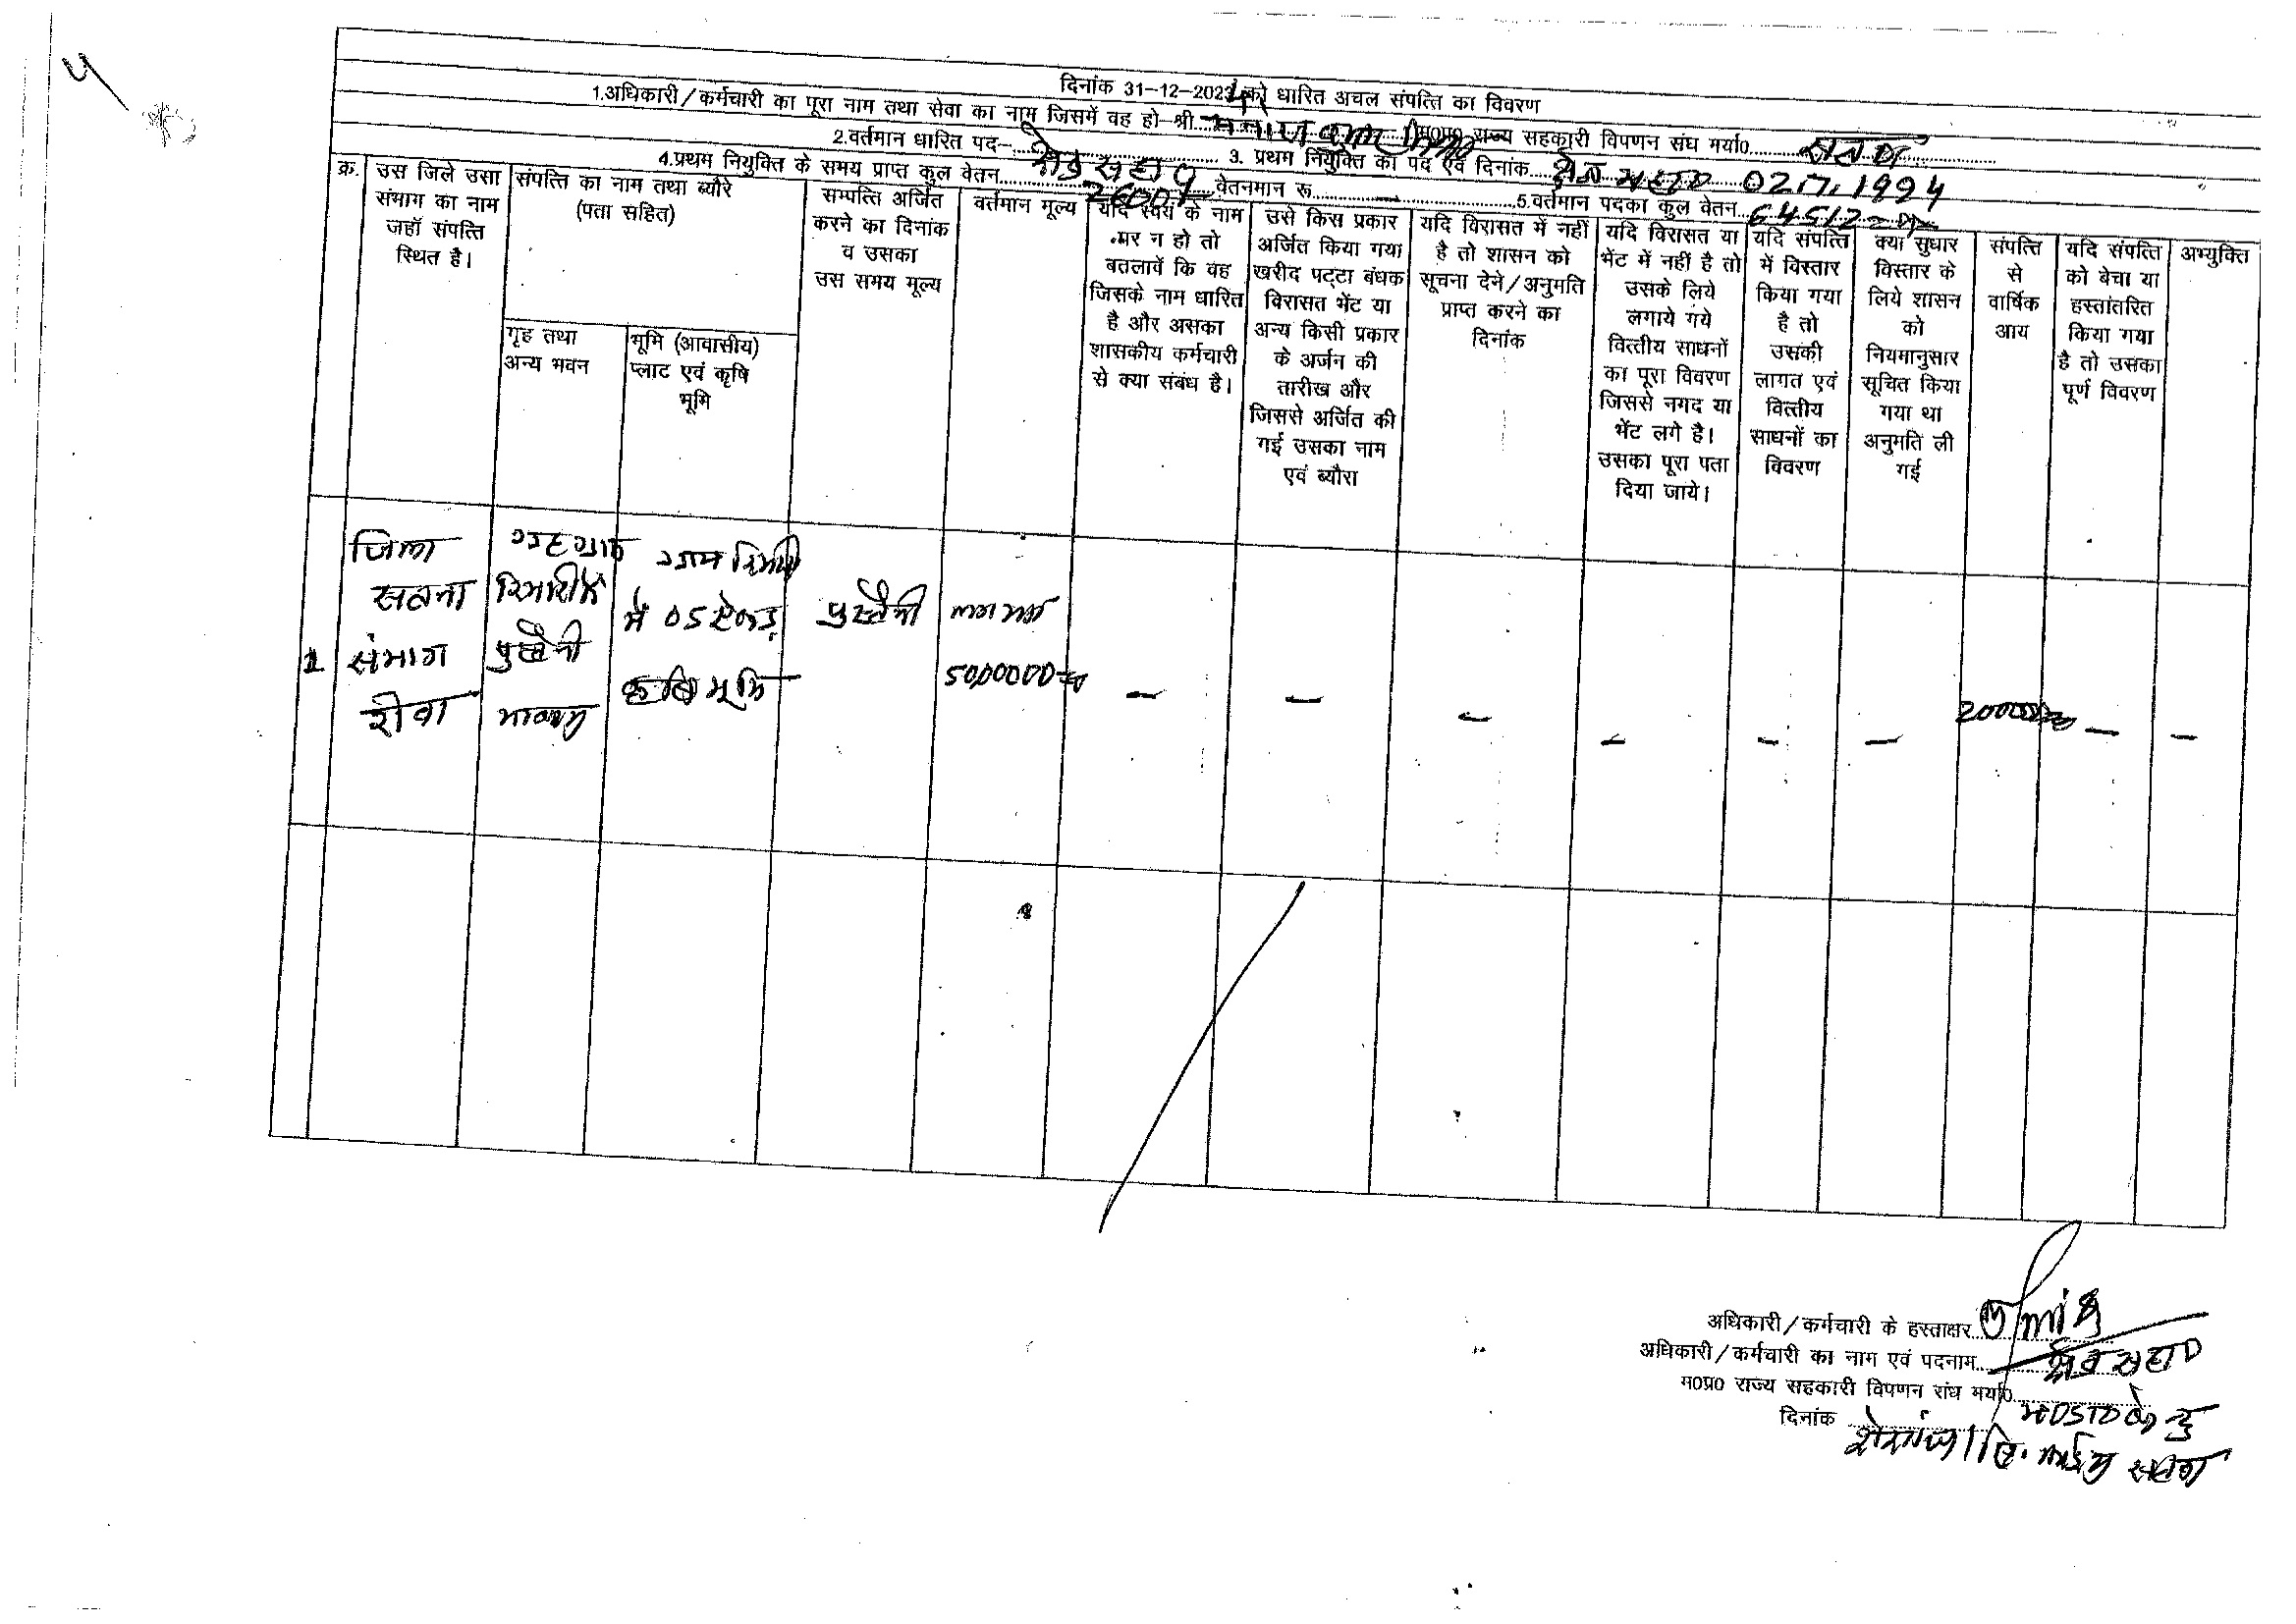 दिनांक 31-12-2024 को धारित अचल संपत्ति का विवरण
1.अधिकारी/कर्मचारी का पूरा नाम तथा सेवा का नाम जिसमें वह हो श्री मनोज कुमार म0प्र0 राज्य सहकारी विपणन संघ मर्या0 सतना
2.वर्तमान धारित पद- क्षेत्र सहाय 3. प्रथम नियुक्ति का पद एवं दिनांक क्षेत्र सहाय 02.7.1994
4.प्रथम नियुक्ति के समय प्राप्त कुल वेतन 2600/- वेतनमान रू. - 5.वर्तमान पदका कुल वेतन 64512=00
क्र.
उस जिले उसा
संभाग का नाम
जहाँ संपत्ति
स्थित है।
संपत्ति का नाम तथा ब्यौरे
(पता सहित)
गृह तथा
अन्य भवन
भूमि (आवासीय)
प्लाट एवं कृषि
भूमि
सम्पत्ति अर्जित
करने का दिनांक
व उसका
उस समय मूल्य
वर्तमान मूल्य
यदि स्वयं के नाम
पर न हो तो
बतलावें कि वह
जिसके नाम धारित
है और असका
शासकीय कर्मचारी
से क्या संबंध है।
उसे किस प्रकार
अर्जित किया गया
खरीद पट्टा बंधक
विरासत भेंट या
अन्य किसी प्रकार
के अर्जन की
तारीख और
जिससे अर्जित की
गई उसका नाम
एवं ब्यौरा
यदि विरासत में नहीं
है तो शासन को
सूचना देने/अनुमति
प्राप्त करने का
दिनांक
यदि विरासत या
भेंट में नहीं है तो
उसके लिये
लगाये गये
वित्तीय साधनों
का पूरा विवरण
जिससे नगद या
भेंट लगे है।
उसका पूरा पता
दिया जाये।
यदि संपत्ति
में विस्तार
किया गया
है तो
उसकी
लागत एवं
वित्तीय
साधनों का
विवरण
क्या सुधार
विस्तार के
लिये शासन
को
नियमानुसार
सूचित किया
गया था
अनुमति ली
गई
संपत्ति
से
वार्षिक
आय
यदि संपत्ति
को बेचा या
हस्तांतरित
किया गया
है तो उसका
पूर्ण विवरण
अभ्युक्ति
1
जिला
सतना
संभाग
रीवा
पुस्तैनी
मकान
ग्राम
में 05 ऐकड़
कृषि भूमि
पुस्तैनी
लगभग
5000000=00
-
-
-
-
-
-
200000=00
-
-
अधिकारी/कर्मचारी के हस्ताक्षर
अधिकारी/कर्मचारी का नाम एवं पदनाम क्षेत्र सहाय
म0प्र0 राज्य सहकारी विपणन संघ मर्या0
दिनांक